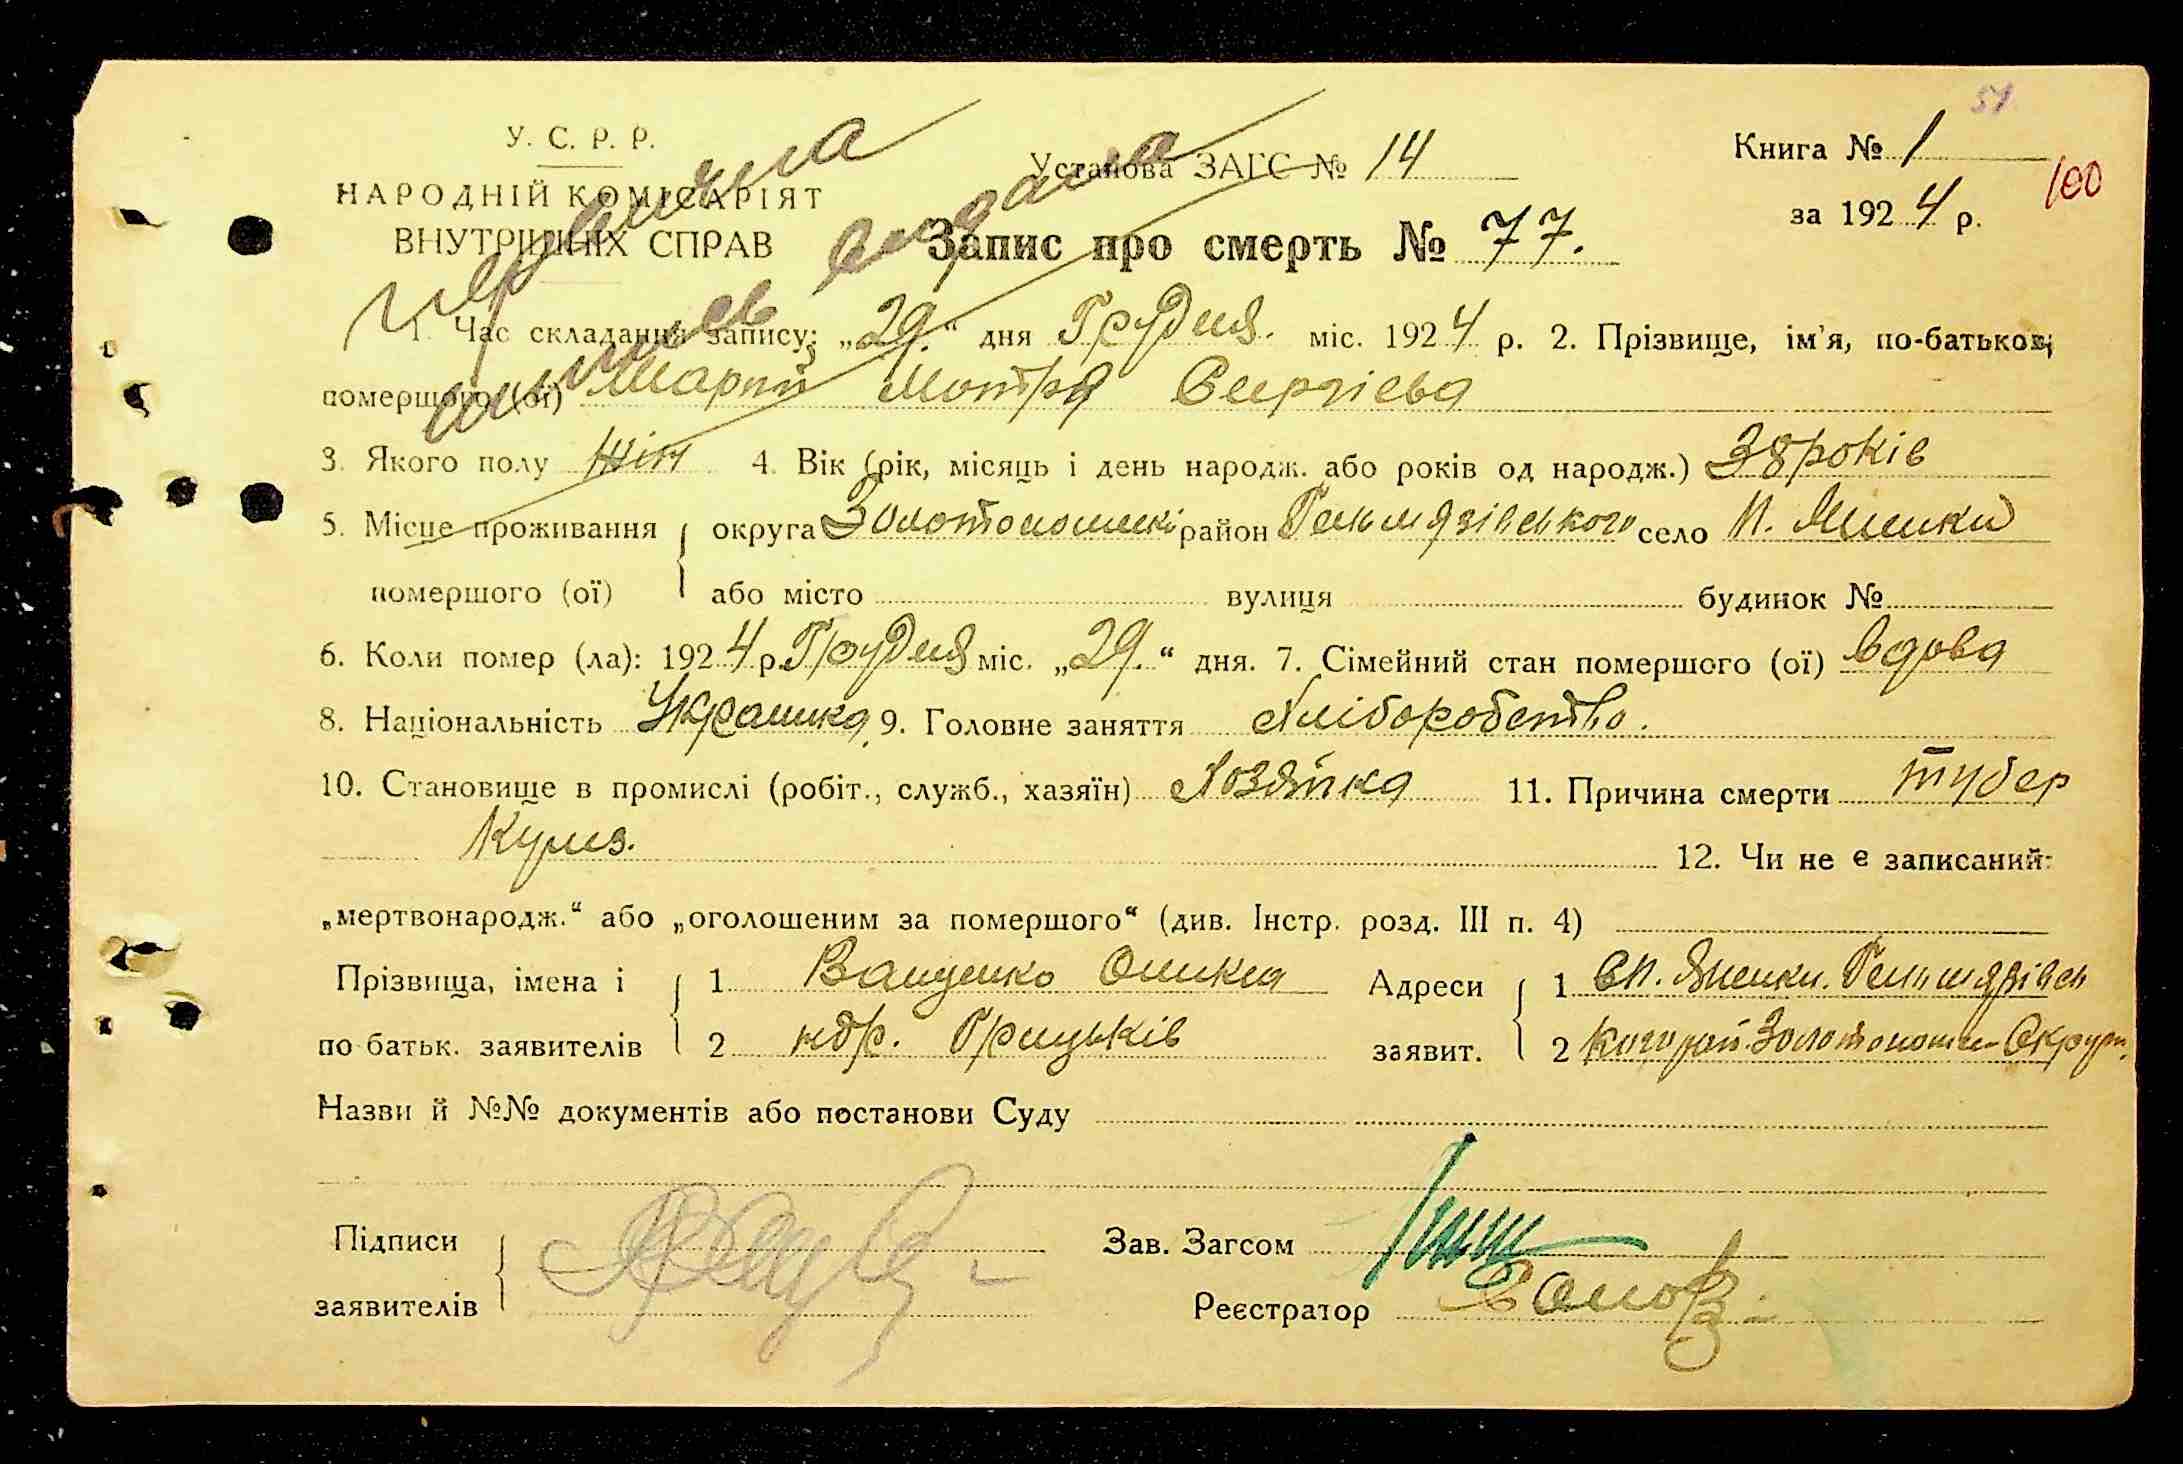 51
У. С. Р. Р.
НАРОДНІЙ КОМІСАРІЯТ
ВНУТРІШНІХ СПРАВ
Установа ЗАГС № 14
Книга № 1
100
за 1924 р.
Запис про смерть № 77.
видана
1. Час складання запису: „29.“ дня Грудня. міс. 1924 р. 2. Прізвище, ім'я, по-батькові
померщого (ої) Мотря Сергієва
3. Якого полу жін 4. Вік (рік, місяць і день народж. або років од народж.) 38 років
5. Місце проживання округа Золотоношськ район Гельмязівського село П. Яшики
помершого (ої) або місто вулиця будинок №
6. Коли помер (ла): 1924 р. Грудня міс. „29.“ дня. 7. Сімейний стан помершого (ої) вдова
8. Національність Украинка 9. Головне заняття Хліборобство.
10. Становище в промислі (робіт., служб., хазяїн) Хозяйка 11. Причина смерти тубер
кулиз. 12. Чи не є записаний:
„мертвонародж.“ або „оголошеним за помершого“ (див. Інстр. розд. III п. 4)
Прізвища, імена і 1 Ващенко Адреси 1
по батьк. заявителів 2 Грицьків заявит. 2
Назви й №№ документів або постанови Суду
Підписи Зав. Загсом
заявителів Реєстратор